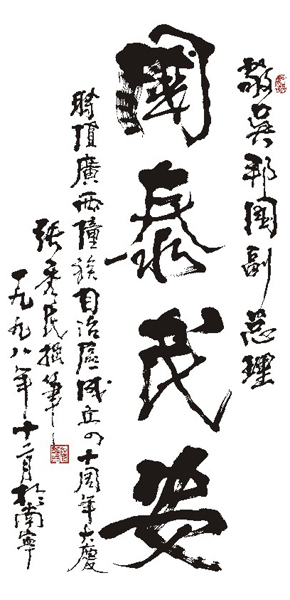 敬吴邦国副总理
國泰民安
時值廣西壯族自治區成立四十周年大慶
張秀民撰筆
一九九八年十二月於南寧